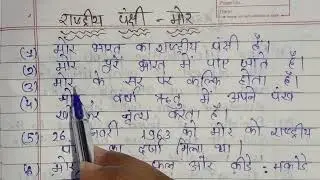 राष्ट्रीय पंक्षी - मोर
(1) मोर भारत का राष्ट्रीय पंक्षी है।
(2) मोर पूरे भारत में पाए जाते हैं।
(3) मोर के सर पर कल्कि होता है।
वर्षा ऋतु में अपने पंख
कर नृत्य करता है।
(5) 26 1963 को मोर को राष्ट्रीय
का दर्जा मिला था।
मोर और कीडे - मकोडे